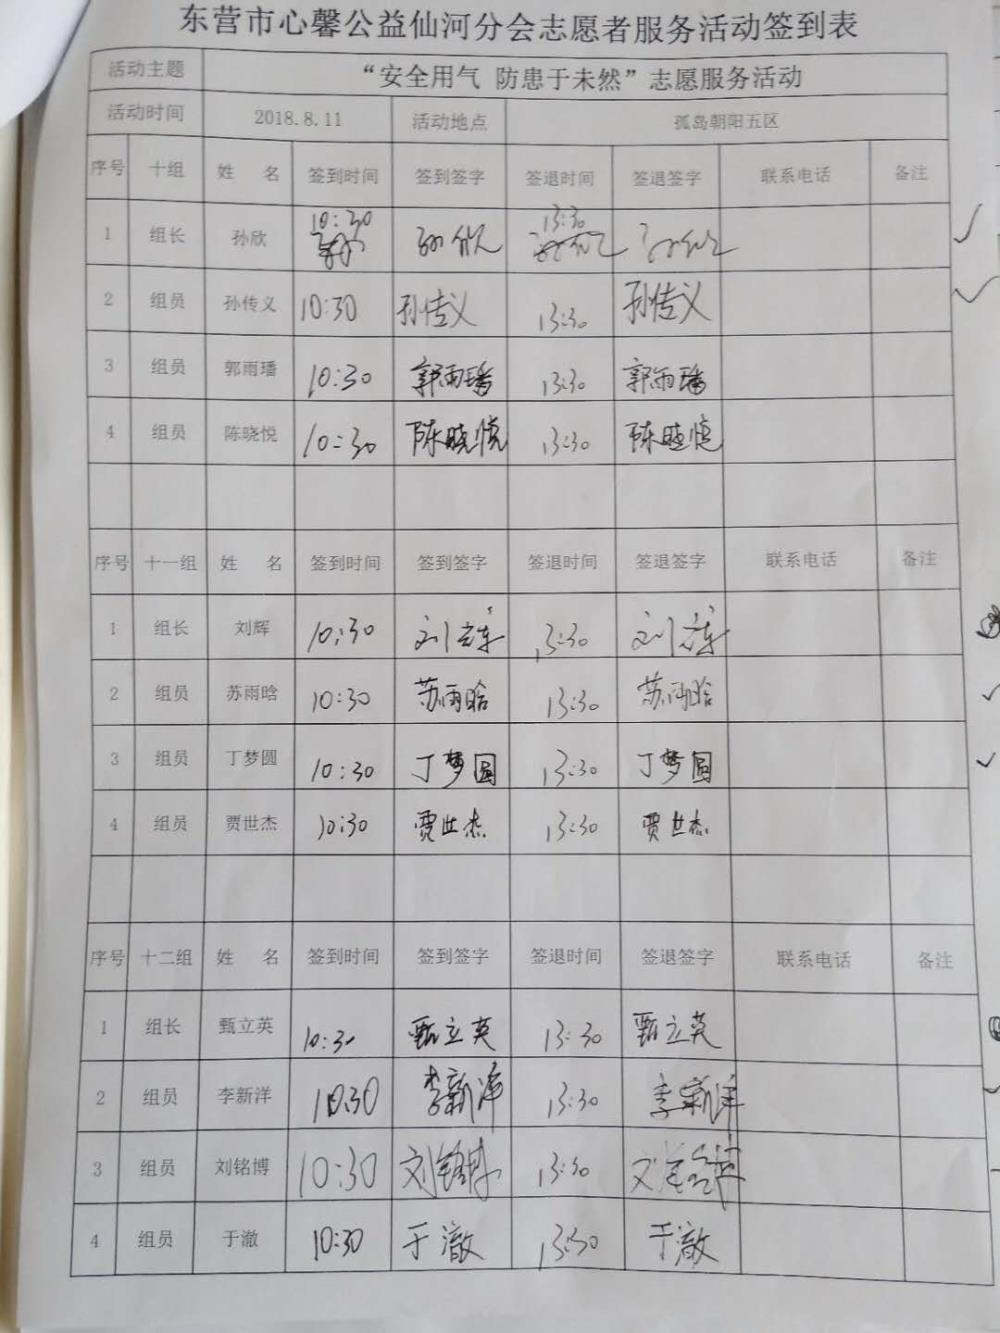 东营市心馨公益仙河分会志愿者服务活动签到表
活动主题 “安全用气 防患于未然”志愿服务活动
活动时间 2018.8.11 活动地点 孤岛朝阳五区
序号 十组 姓 名 签到时间 签到签字 签退时间 签退签字 联系电话 备注
1 组长 孙欣 10:30 孙欣 13:30 孙欣
2 组员 孙传义 10:30 孙传义 13:30 孙传义
3 组员 郭雨璠 10:30 郭雨璠 13:30 郭雨璠
4 组员 陈晓悦 10:30 陈晓悦 13:30 陈晓悦
序号 十一组 姓 名 签到时间 签到签字 签退时间 签退签字 联系电话 备注
1 组长 刘辉 10:30 13:30
2 组员 苏雨晗 10:30 苏雨晗 13:30 苏雨晗
3 组员 丁梦圆 10:30 丁梦圆 13:30 丁梦圆
4 组员 贾世杰 10:30 贾世杰 13:30 贾世杰
序号 十二组 姓 名 签到时间 签到签字 签退时间 签退签字 联系电话 备注
1 组长 甄立英 10:30 甄立英 13:30 甄立英
2 组员 李新洋 10:30 李新洋 13:30 李新洋
3 组员 刘铭博 10:30 刘铭博 13:30 刘铭博
4 组员 于澈 10:30 于澈 13:30 于澈